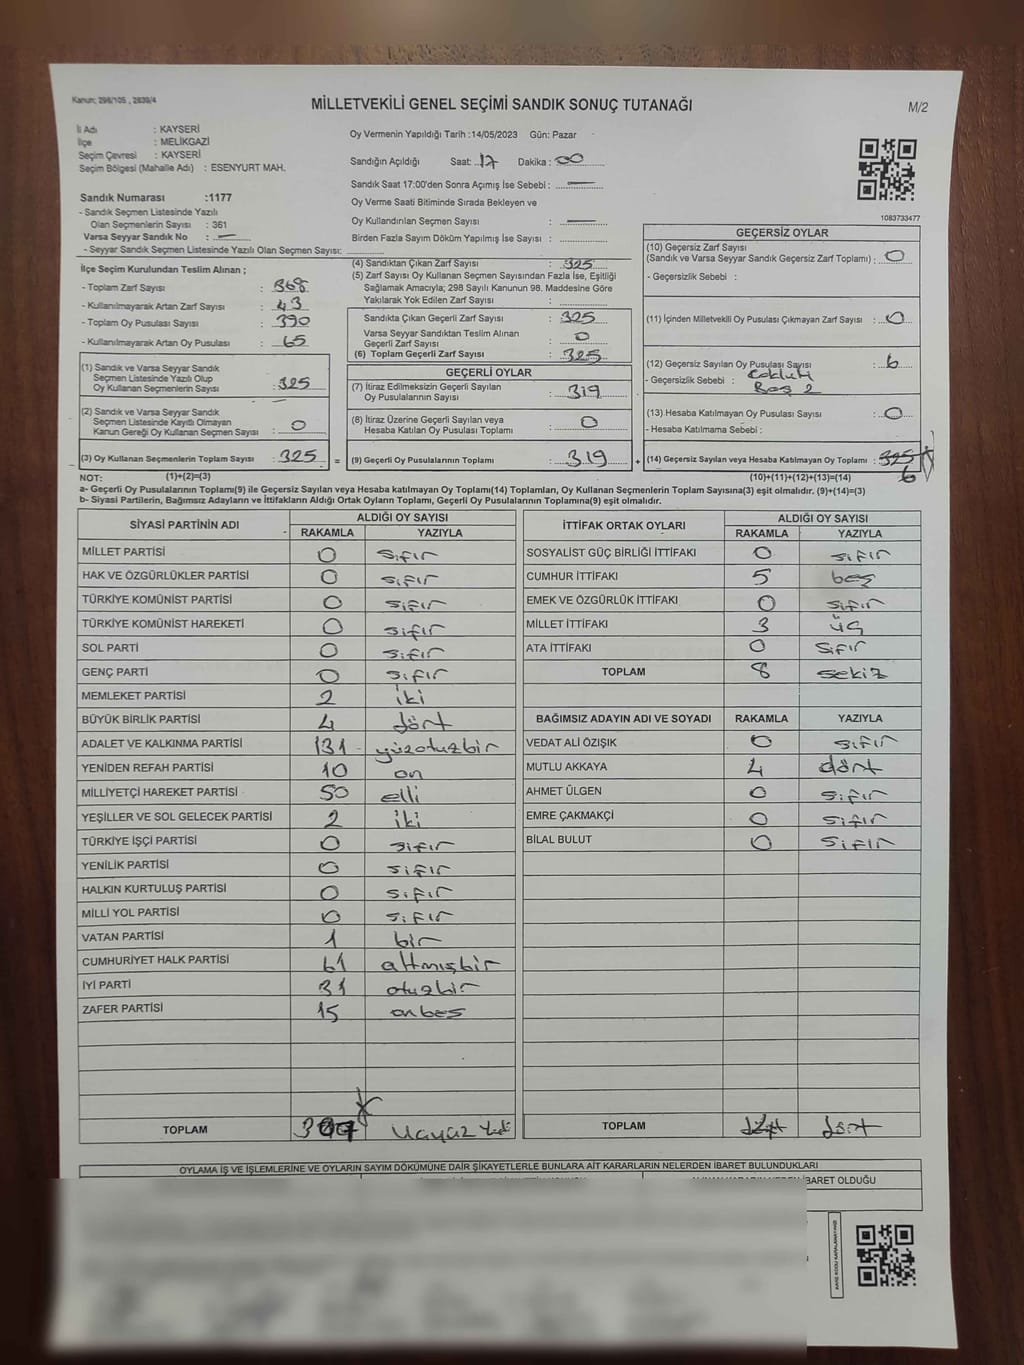 Kanun: 298/105 , 2839/4
MİLLETVEKİLİ GENEL SEÇİMİ SANDIK SONUÇ TUTANAĞI
M/2
İl Adı : KAYSERİ
İlçe : MELİKGAZİ
Seçim Çevresi : KAYSERİ
Seçim Bölgesi (Mahalle Adı) : ESENYURT MAH.
Sandık Numarası :1177
- Sandık Seçmen Listesinde Yazılı
Olan Seçmenlerin Sayısı : 361
Varsa Seyyar Sandık No : —
- Seyyar Sandık Seçmen Listesinde Yazılı Olan Seçmen Sayısı:
İlçe Seçim Kurulundan Teslim Alınan ;
- Toplam Zarf Sayısı : 368
- Kullanılmayarak Artan Zarf Sayısı : 43
- Toplam Oy Pusulası Sayısı : 390
- Kullanılmayarak Artan Oy Pusulası : 65
(1) Sandık ve Varsa Seyyar Sandık
Seçmen Listesinde Yazılı Olup
Oy Kullanan Seçmenlerin Sayısı : 325
(2) Sandık ve Varsa Seyyar Sandık
Seçmen Listesinde Kayıtlı Olmayan
Kanun Gereği Oy Kullanan Seçmen Sayısı : 0
(3) Oy Kullanan Seçmenlerin Toplam Sayısı : 325 =
Oy Vermenin Yapıldığı Tarih :14/05/2023 Gün: Pazar
Sandığın Açıldığı Saat: 17 Dakika: 00
Sandık Saat 17:00'den Sonra Açımış İse Sebebi : —
Oy Verme Saati Bitiminde Sırada Bekleyen ve
Oy Kullandırılan Seçmen Sayısı : —
Birden Fazla Sayım Döküm Yapılmış İse Sayısı :
(4) Sandıktan Çıkan Zarf Sayısı : 325
(5) Zarf Sayısı Oy Kullanan Seçmen Sayısından Fazla İse, Eşitliği
Sağlamak Amacıyla; 298 Sayılı Kanunun 98. Maddesine Göre
Yakılarak Yok Edilen Zarf Sayısı :
Sandıkta Çıkan Geçerli Zarf Sayısı : 325
Varsa Seyyar Sandıktan Teslim Alınan
Geçerli Zarf Sayısı : 0
(6) Toplam Geçerli Zarf Sayısı : 325
GEÇERLİ OYLAR
(7) İtiraz Edilmeksizin Geçerli Sayılan
Oy Pusulalarının Sayısı : 319
(8) İtiraz Üzerine Geçerli Sayılan veya
Hesaba Katılan Oy Pusulası Toplamı : 0
(9) Geçerli Oy Pusulalarının Toplamı : 319 +
1083733477
GEÇERSİZ OYLAR
(10) Geçersiz Zarf Sayısı
(Sandık ve Varsa Seyyar Sandık Geçersiz Zarf Toplamı) : 0
- Geçersizlik Sebebi :
(11) İçinden Milletvekili Oy Pusulası Çıkmayan Zarf Sayısı : 0
(12) Geçersiz Sayılan Oy Pusulası Sayısı : 6
- Geçersizlik Sebebi :
Boş 2
(13) Hesaba Katılmayan Oy Pusulası Sayısı : 0
- Hesaba Katılmama Sebebi :
(14) Geçersiz Sayılan veya Hesaba Katılmayan Oy Toplamı : 325
6
NOT: (1)+(2)=(3) (10)+(11)+(12)+(13)=(14)
a- Geçerli Oy Pusulalarının Toplamı(9) ile Geçersiz Sayılan veya Hesaba katılmayan Oy Toplamı(14) Toplamları, Oy Kullanan Seçmenlerin Toplam Sayısına(3) eşit olmalıdır. (9)+(14)=(3)
b- Siyasi Partilerin, Bağımsız Adayların ve İttifakların Aldığı Ortak Oyların Toplamı, Geçerli Oy Pusulalarının Toplamına(9) eşit olmalıdır.
SİYASİ PARTİNİN ADI ALDIĞI OY SAYISI
RAKAMLA YAZIYLA
MİLLET PARTİSİ 0 sıfır
HAK VE ÖZGÜRLÜKLER PARTİSİ 0 sıfır
TÜRKİYE KOMÜNİST PARTİSİ 0 sıfır
TÜRKİYE KOMÜNİST HAREKETİ 0 sıfır
SOL PARTİ 0 sıfır
GENÇ PARTİ 0 sıfır
MEMLEKET PARTİSİ 2 iki
BÜYÜK BİRLİK PARTİSİ 4 dört
ADALET VE KALKINMA PARTİSİ 131 yüzotuzbir
YENİDEN REFAH PARTİSİ 10 on
MİLLİYETÇİ HAREKET PARTİSİ 50 elli
YEŞİLLER VE SOL GELECEK PARTİSİ 2 iki
TÜRKİYE İŞÇİ PARTİSİ 0 sıfır
YENİLİK PARTİSİ 0 sıfır
HALKIN KURTULUŞ PARTİSİ 0 sıfır
MİLLİ YOL PARTİSİ 0 sıfır
VATAN PARTİSİ 1 bir
CUMHURİYET HALK PARTİSİ 61 altmışbir
İYİ PARTİ 31 otuzbir
ZAFER PARTİSİ 15 onbeş
TOPLAM 307
İTTİFAK ORTAK OYLARI ALDIĞI OY SAYISI
RAKAMLA YAZIYLA
SOSYALİST GÜÇ BİRLİĞİ İTTİFAKI 0 sıfır
CUMHUR İTTİFAKI 5 beş
EMEK VE ÖZGÜRLÜK İTTİFAKI 0 sıfır
MİLLET İTTİFAKI 3 üç
ATA İTTİFAKI 0 sıfır
TOPLAM 8 sekiz
BAĞIMSIZ ADAYIN ADI VE SOYADI RAKAMLA YAZIYLA
VEDAT ALİ ÖZIŞIK 0 sıfır
MUTLU AKKAYA 4 dört
AHMET ÜLGEN 0 sıfır
EMRE ÇAKMAKÇİ 0 sıfır
BİLAL BULUT 0 sıfır
TOPLAM dört
OYLAMA İŞ VE İŞLEMLERİNE VE OYLARIN SAYIM DÖKÜMÜNE DAİR ŞİKAYETLERLE BUNLARA AİT KARARLARIN NELERDEN İBARET BULUNDUKLARI
İBARET OLDUĞU